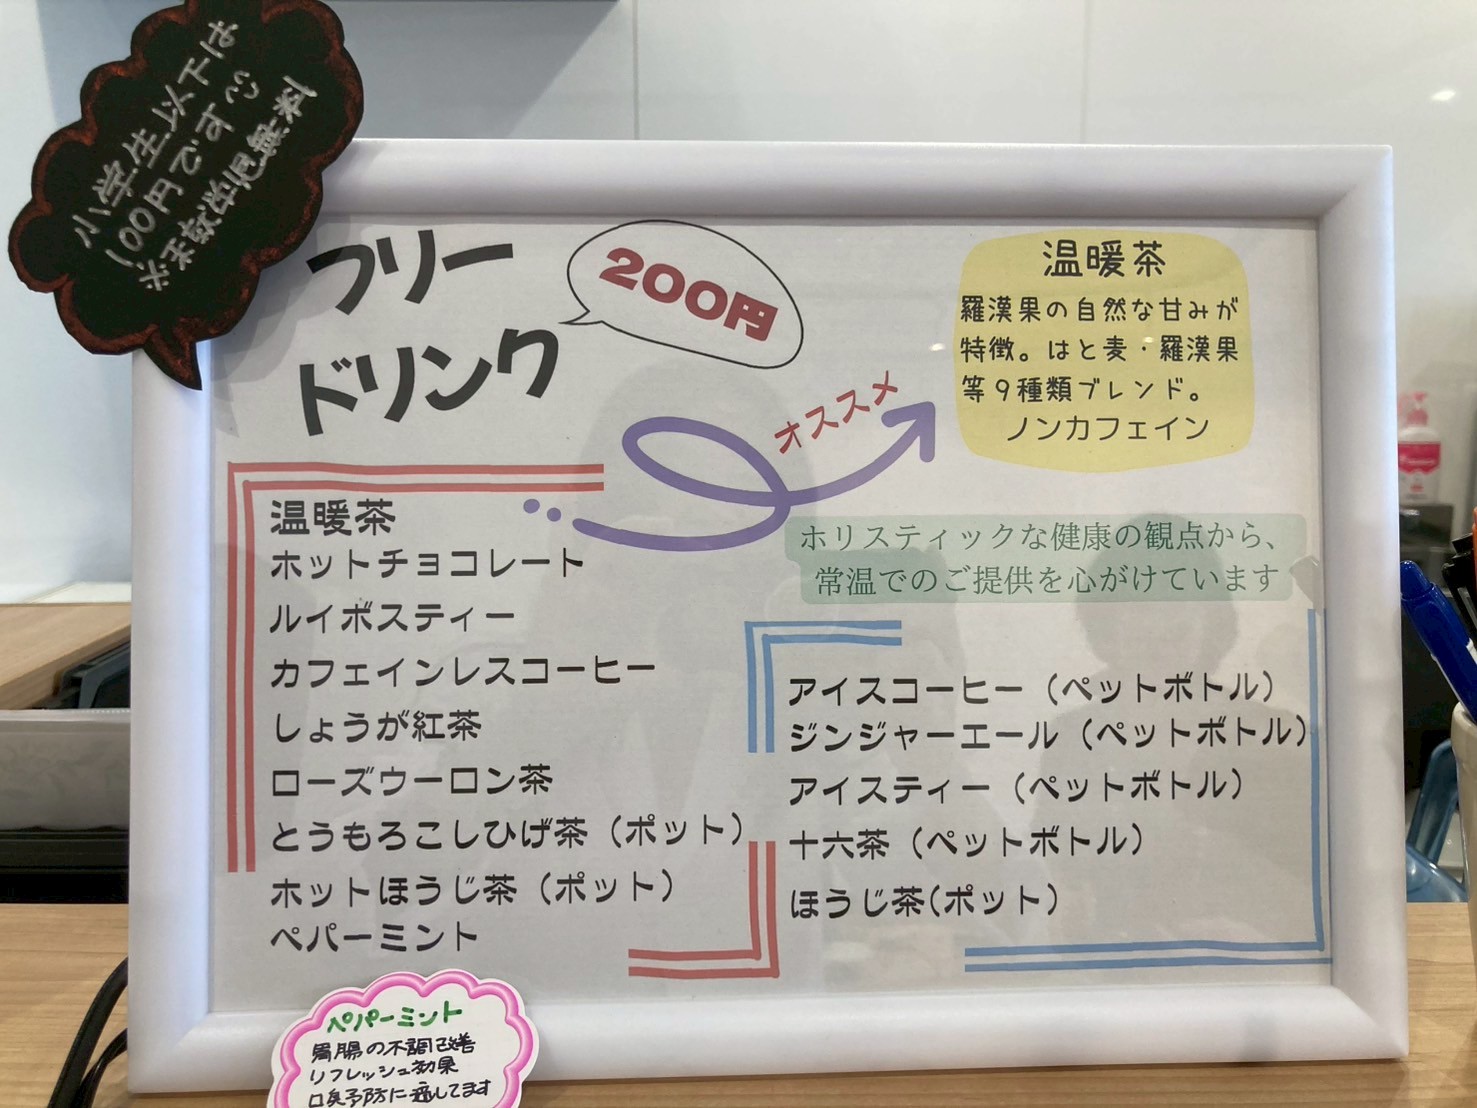 小学生以下は
100円です
※未就学児無料
フリー
ドリンク
200円
オススメ
温暖茶
羅漢果の自然な甘みが
特徴。はと麦・羅漢果
等9種類ブレンド。
ノンカフェイン
温暖茶
ホットチョコレート
ルイボスティー
カフェインレスコーヒー
しょうが紅茶
ローズウーロン茶
とうもろこしひげ茶（ポット）
ホットほうじ茶（ポット）
ペパーミント
ホリスティックな健康の観点から、
常温でのご提供を心がけています
アイスコーヒー（ペットボトル）
ジンジャーエール（ペットボトル）
アイスティー（ペットボトル）
十六茶（ペットボトル）
ほうじ茶(ポット）
ペパーミント
胃腸の不調改善
リフレッシュ効果
口臭予防に適してます